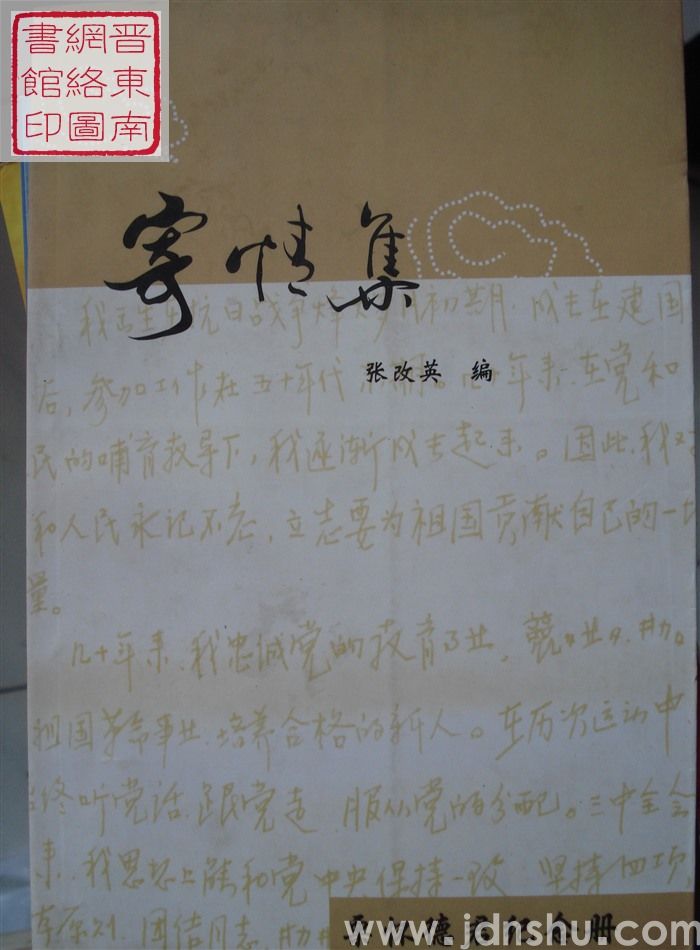 晋東南
網絡圖
書館印
寄情集
张改英 编
我出生在抗日战争烽火岁月初期，成长在建国
后，参加工作在五十年代 年来在党和
民的哺育教导下，我逐渐成长起来。因此，我
和人民永记不忘，立志要为祖国贡献自己的一切
量。
几十年来，我忠诚党的教育事业，兢兢业业，
祖国革命事业培养合格的新人。在历次运动中
终听党话，跟党走，服从党的分配。三中全会
来，我思想上能和党中央保持一致，坚持四项
本原则，团结同志，
纪念册
www.jdnshu.com